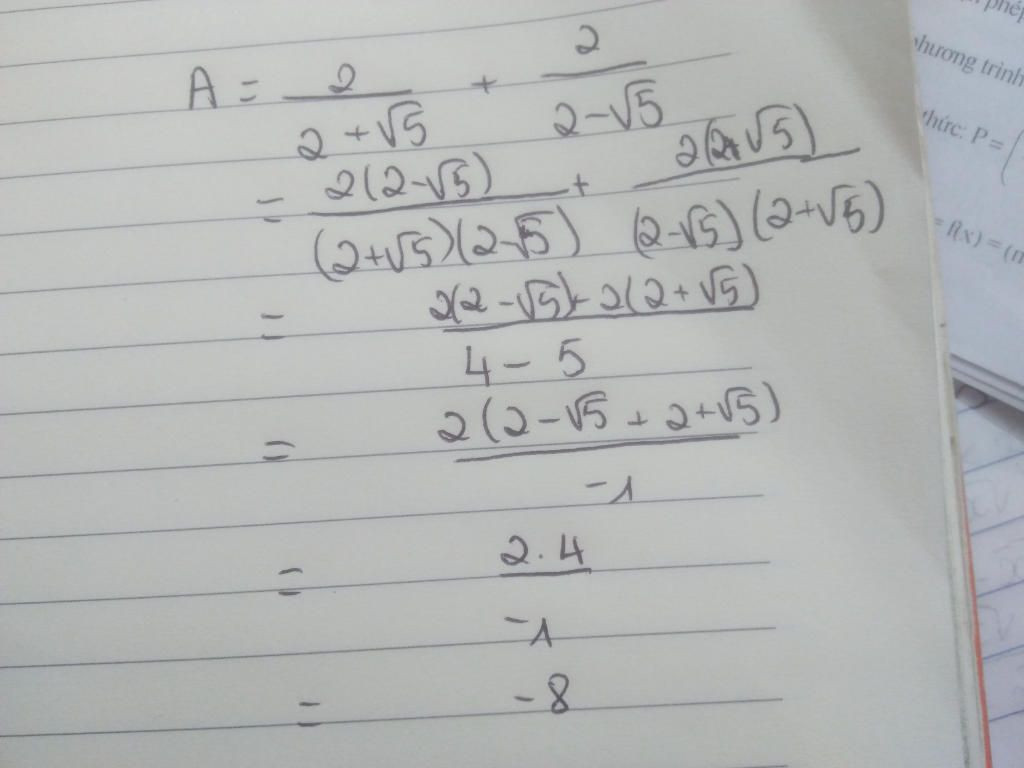 A = 2/(2 + √5) + 2/(2 - √5)
= 2(2 - √5)/((2 + √5)(2 - √5)) + 2(2 + √5)/((2 - √5)(2 + √5))
= (2(2 - √5) + 2(2 + √5))/(4 - 5)
= 2(2 - √5 + 2 + √5)/(-1)
= 2.4/(-1)
= -8
phương trình
thức: P = (
= f(x) = (m